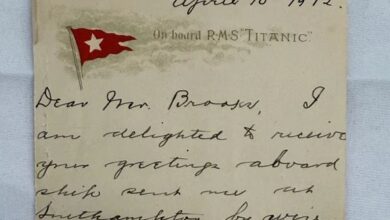 April 10 1912.
On board R.M.S "TITANIC"
Dear Mr. Brooks, I
am delighted to receive
your greetings aboard
ship sent me at
Southampton by wire